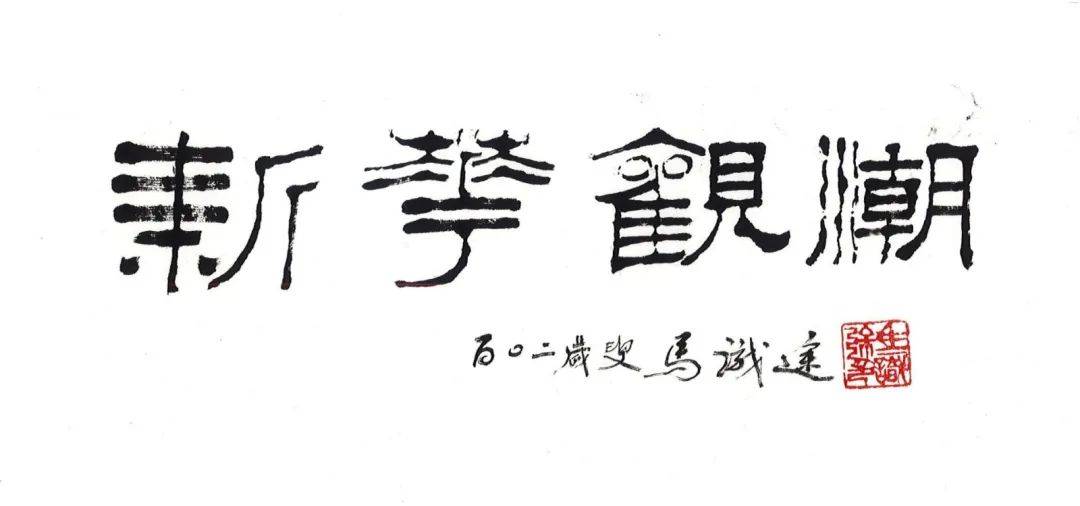 新華觀潮
百〇二歲叟 馬識途